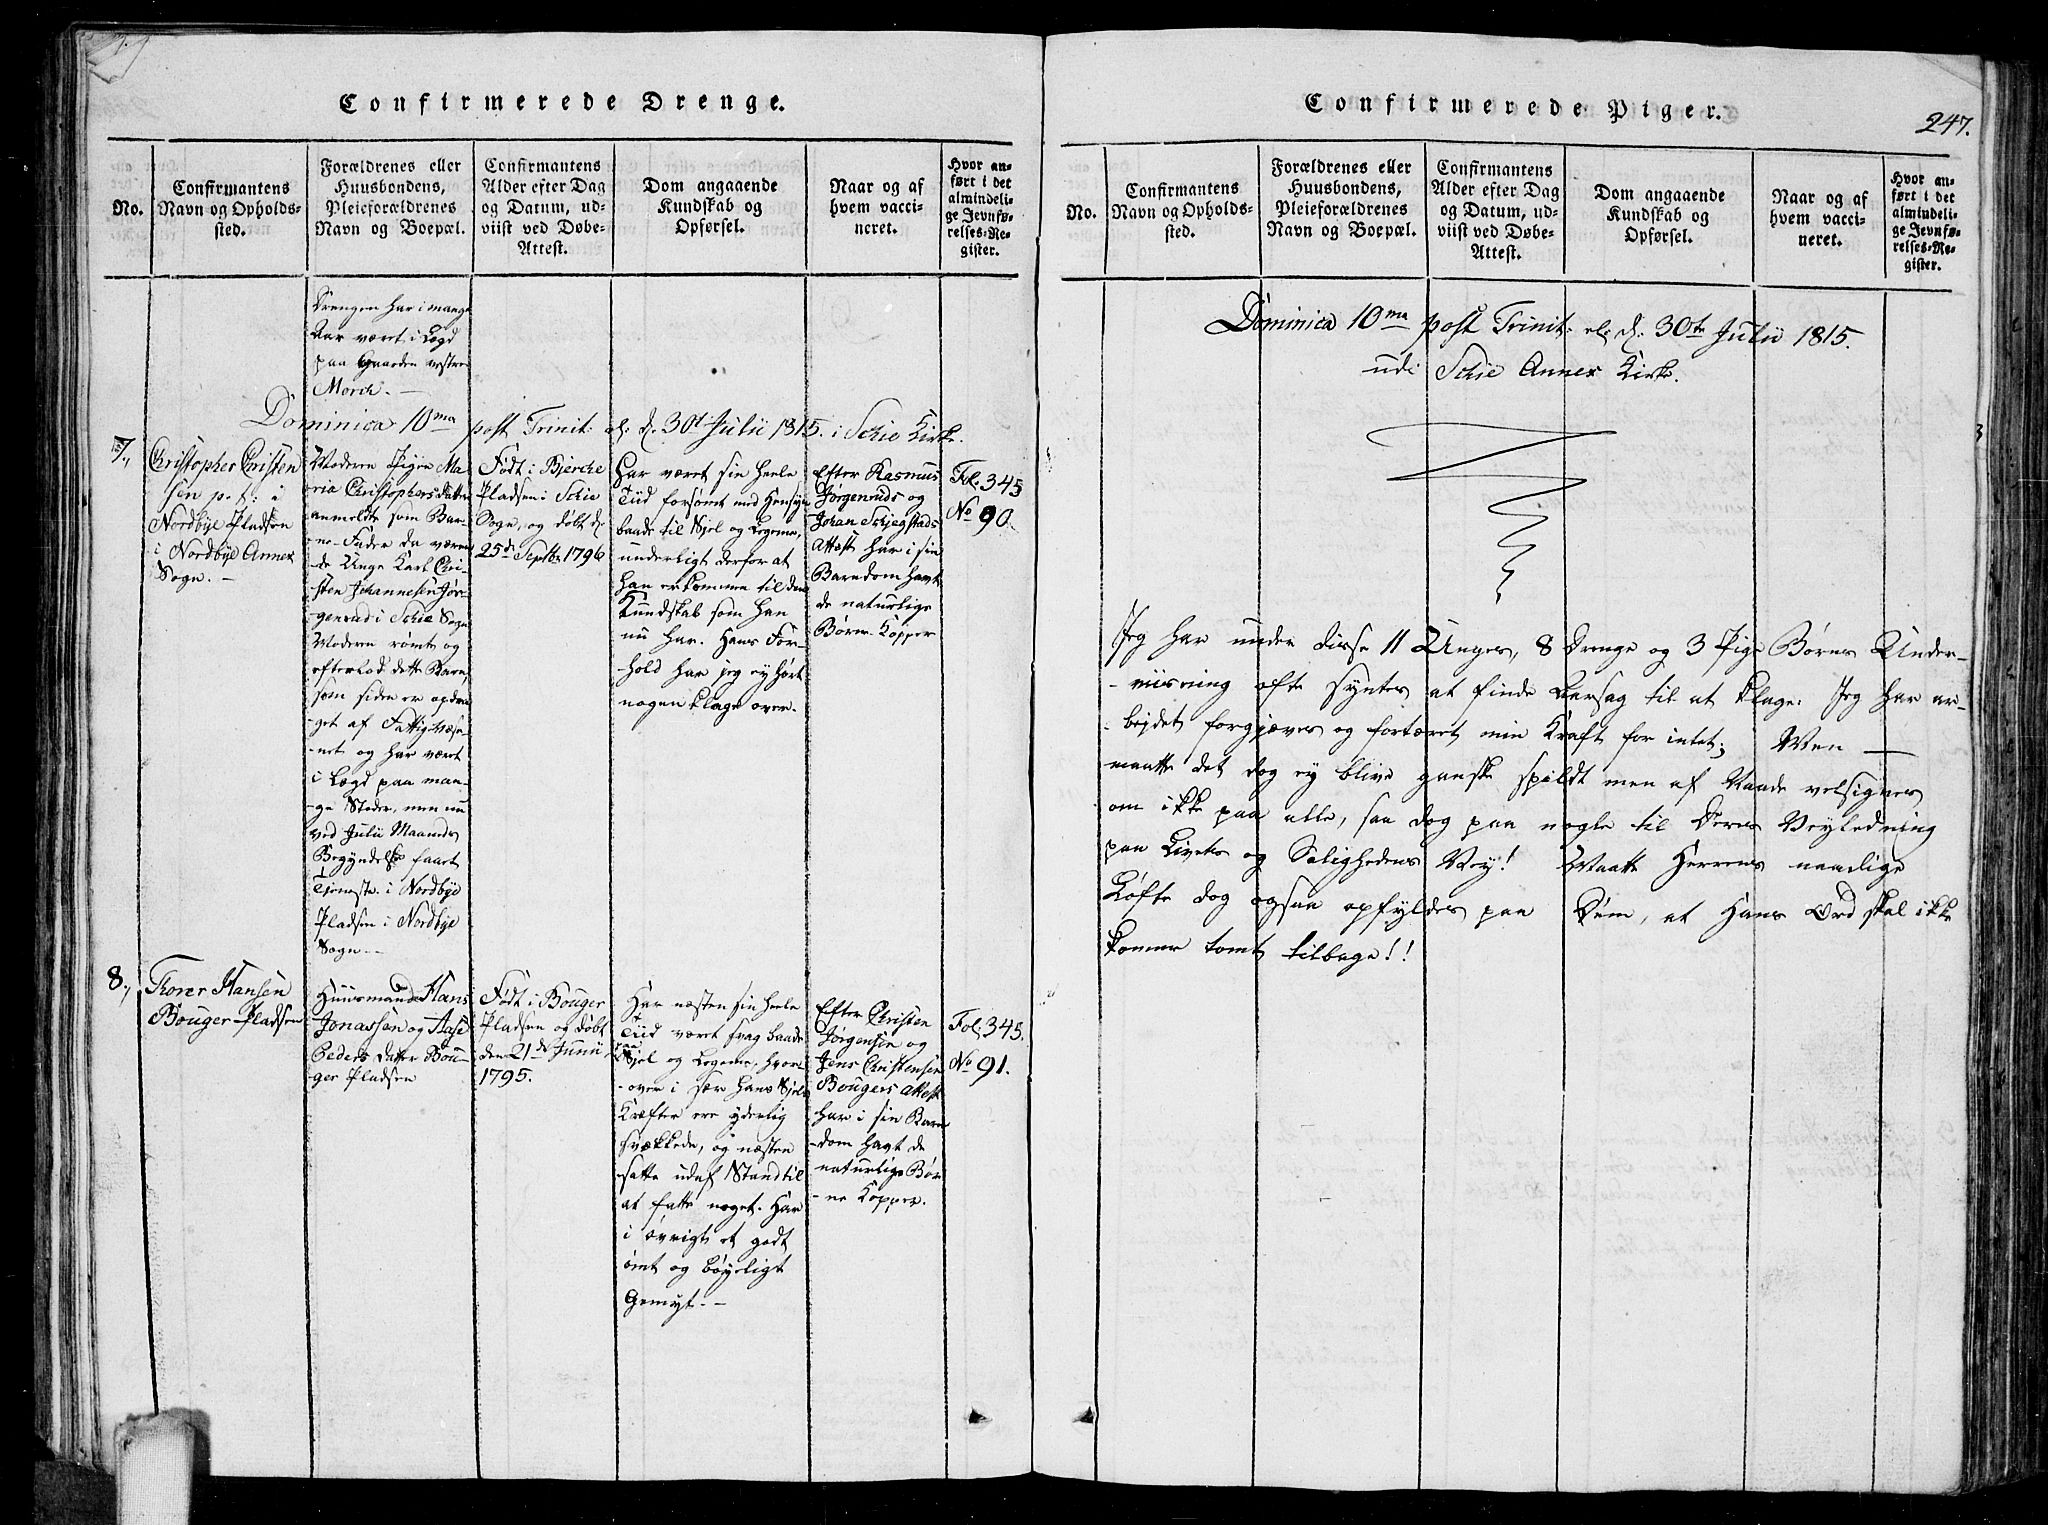 Confirmerede Drenge.
No.
Confirmantens
Navn og Opholds-
sted.
Forældrenes eller
Huusbondens,
Pleieforældrenes
Navn og Boepæl.
Confirmantens
Alder efter Dag
og Datum, ud-
viist ved Døbe-
Attest.
Dom angaaende
Kundskab og
Opførsel.
Naar og af
hvem vacci-
neret.
Hvor an-
ført i det
almindeli-
ge Jevnfø-
relses-Re-
gister.
Drengen har i mange
Aar været i Lægd
paa Gaarden vestre
Morch. -
Dominica 10ma post Trinit: el: d. 30t Julii 1815. i Schie Kirke.
7.,
Christopher Christen
sen p. t: i
Nordbye Pladsen
i Nordbye Annex
Sogn. -
Moderen Pigen Ma
ria Christophers Datter
anmeldte som Bar-
ne-Fader da væren
de Unge Karl Chri-
sten Johannesen Jør-
genrud i Schie Sogn
Moderen rømte og
efterlod dette Barn,
som siden er opdra
-get af Fattigvæse
-net og har været
i Lægd paa man-
-ge Steder, men nu
ved Julii Maaneds
Begyndelse faaet
Tjeneste i Nordbye
Pladsen i Nordbye
Sogn. -
Født i Bjerche
Pladsen i Schie
Sogn, og døbt d.
25de Septbr 1796
Har været sin heele
Tiid forsømt med Hensyn
baade til Sjel og Legeme,
underligt derfor at
han er komme til den
Kundskab som han
nu har. Hans For-
-hold har jeg ey hørt
nogen Klage over.
Efter Rasmus
Jørgenruds og
Johan Schjegstads
Attest har i sin
Barndom havt
de naturlige
Børne-Kopper
Fol. 345
No 90.
8.,
Thorer Hansen
Bouger Pladsen
Huusmand Hans
Jonassen og Aase
Peders Datter Bou-
ger Pladsen
Født i Bouger
Pladsen og døbt
den 21de Junii
1795.
Har næsten sin heele
Tiid været svag baade
paa
Sjel og Legeme, hvor
-over i sær hans Sjels
Kræfter ere yderlig
svækkede, og næsten
satte udaf Stand til
at fatte noget. Har
i øvrigt et godt
ømt og bøyeligt
Gemyt. -
Efter Christen
Jørgensen og
Jens Christensen
Bougers Attest
har i sin Barn
-dom havt de
naturlige Bør
-ne Kopper.
Fol: 345.
No 91.
Confirmerede Piger.
247.
No.
Confirmantens
Navn og Opholds-
sted.
Forældrenes eller
Huusbondens,
Pleieforældrenes
Navn og Boepæl.
Confirmantens
Alder efter Dag
og Datum, ud-
viist ved Døbe-
Attest.
Dom angaaende
Kundskab og
Opførsel.
Naar og af
hvem vacci-
neret.
Hvor an-
ført i det
almindeli-
ge Jevnfø-
relses-Re-
gister.
Dominica 10ma post Trinit: el: d. 30te Julii 1815.
udi Schie Annex Kirke.
Jeg har under disse 11 Unges, 8 Drenge og 3 Pige Børns Under-
-viisning ofte syntes at finde Aarsag til at klage: Jeg har ar-
-bejdet forgjæves og fortæret min Kraft for intet; Men —
maatte det dog ey blive ganske spildt men af Naade velsignes
om ikke paa alle, saa dog paa nogle til Deres Veyledning
paa Livets og Salighedens Vey! Maatte Herrens naadige
Løfte dog ogsaa opfyldes paa Dem, at Hans Ord skal ikke
komme tomt tilbage!!